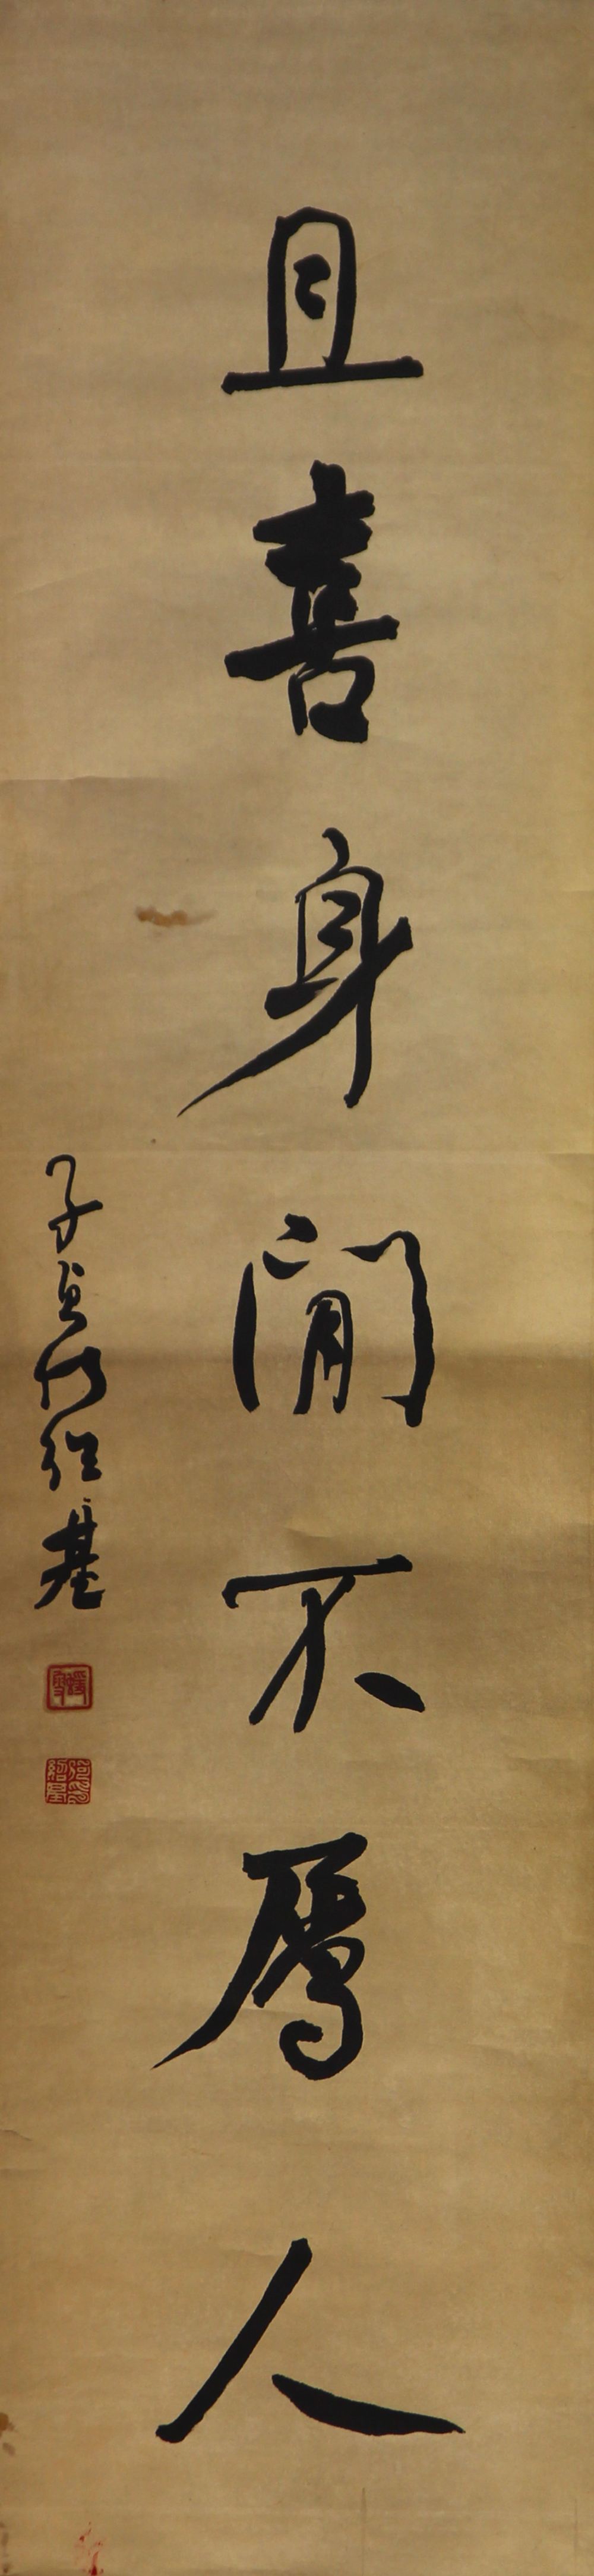 且喜身閒不屬人
子貞何紹基